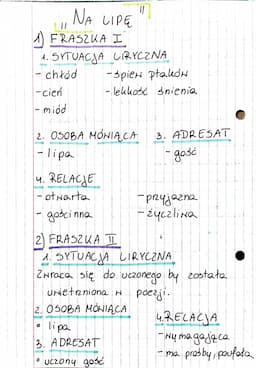 "NA LIPĘ"
1) FRASZKA I
1. SYTUACJA LIRYCZNA
- chłód - śpiew ptaków
- cień - lekkość śnienia
- miód
2. OSOBA MÓWIĄCA 3. ADRESAT
- lipa - gość
4. RELACJE
- otwarta - przyjazna
- gościnna - życzliwa
2) FRASZKA II
1. SYTUACJA LIRYCZNA
Zwraca się do uczonego by została
uwieczniona w poezji.
2. OSOBA MÓWIĄCA 4. RELACJA
• lipa - wymagająca
3. ADRESAT - ma prośby, poufała
• uczony gość